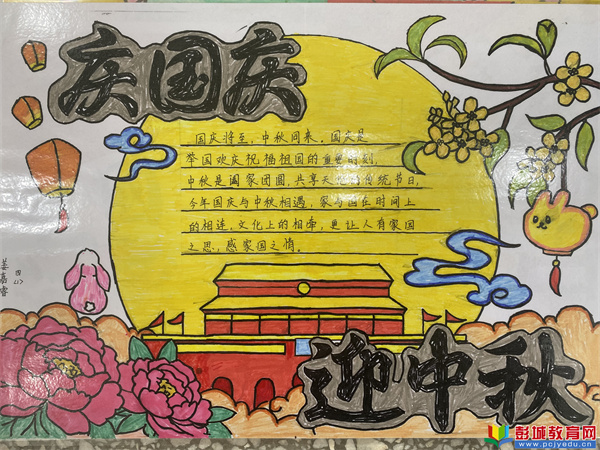 庆国庆
国庆将至，中秋同来。国庆是
举国欢庆祝福祖国的重要时刻，
中秋是阖家团圆，共享天伦的传统节日，
今年国庆与中秋相遇，家与国在时间上
的相连，文化上的相牵，更让人有家国
之思，感家国之情。
姜嘉睿
四(2)
迎中秋
彭城教育网
www.pcjyedu.cn